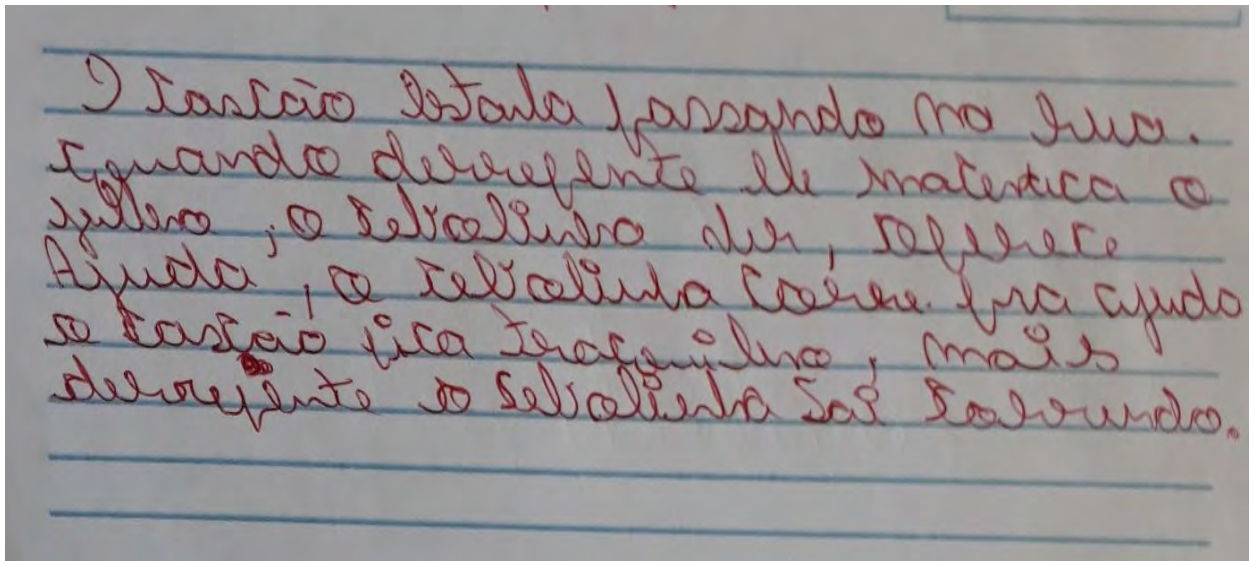 O Cascão estava passando na rua.
quando derrepente ele
, o Sebolinha ver, oferece
Ajuda, o cebolinha corre pra ajuda
o cascão fica tracquilno, mais
derrepente o Sebolinha sai correndo.